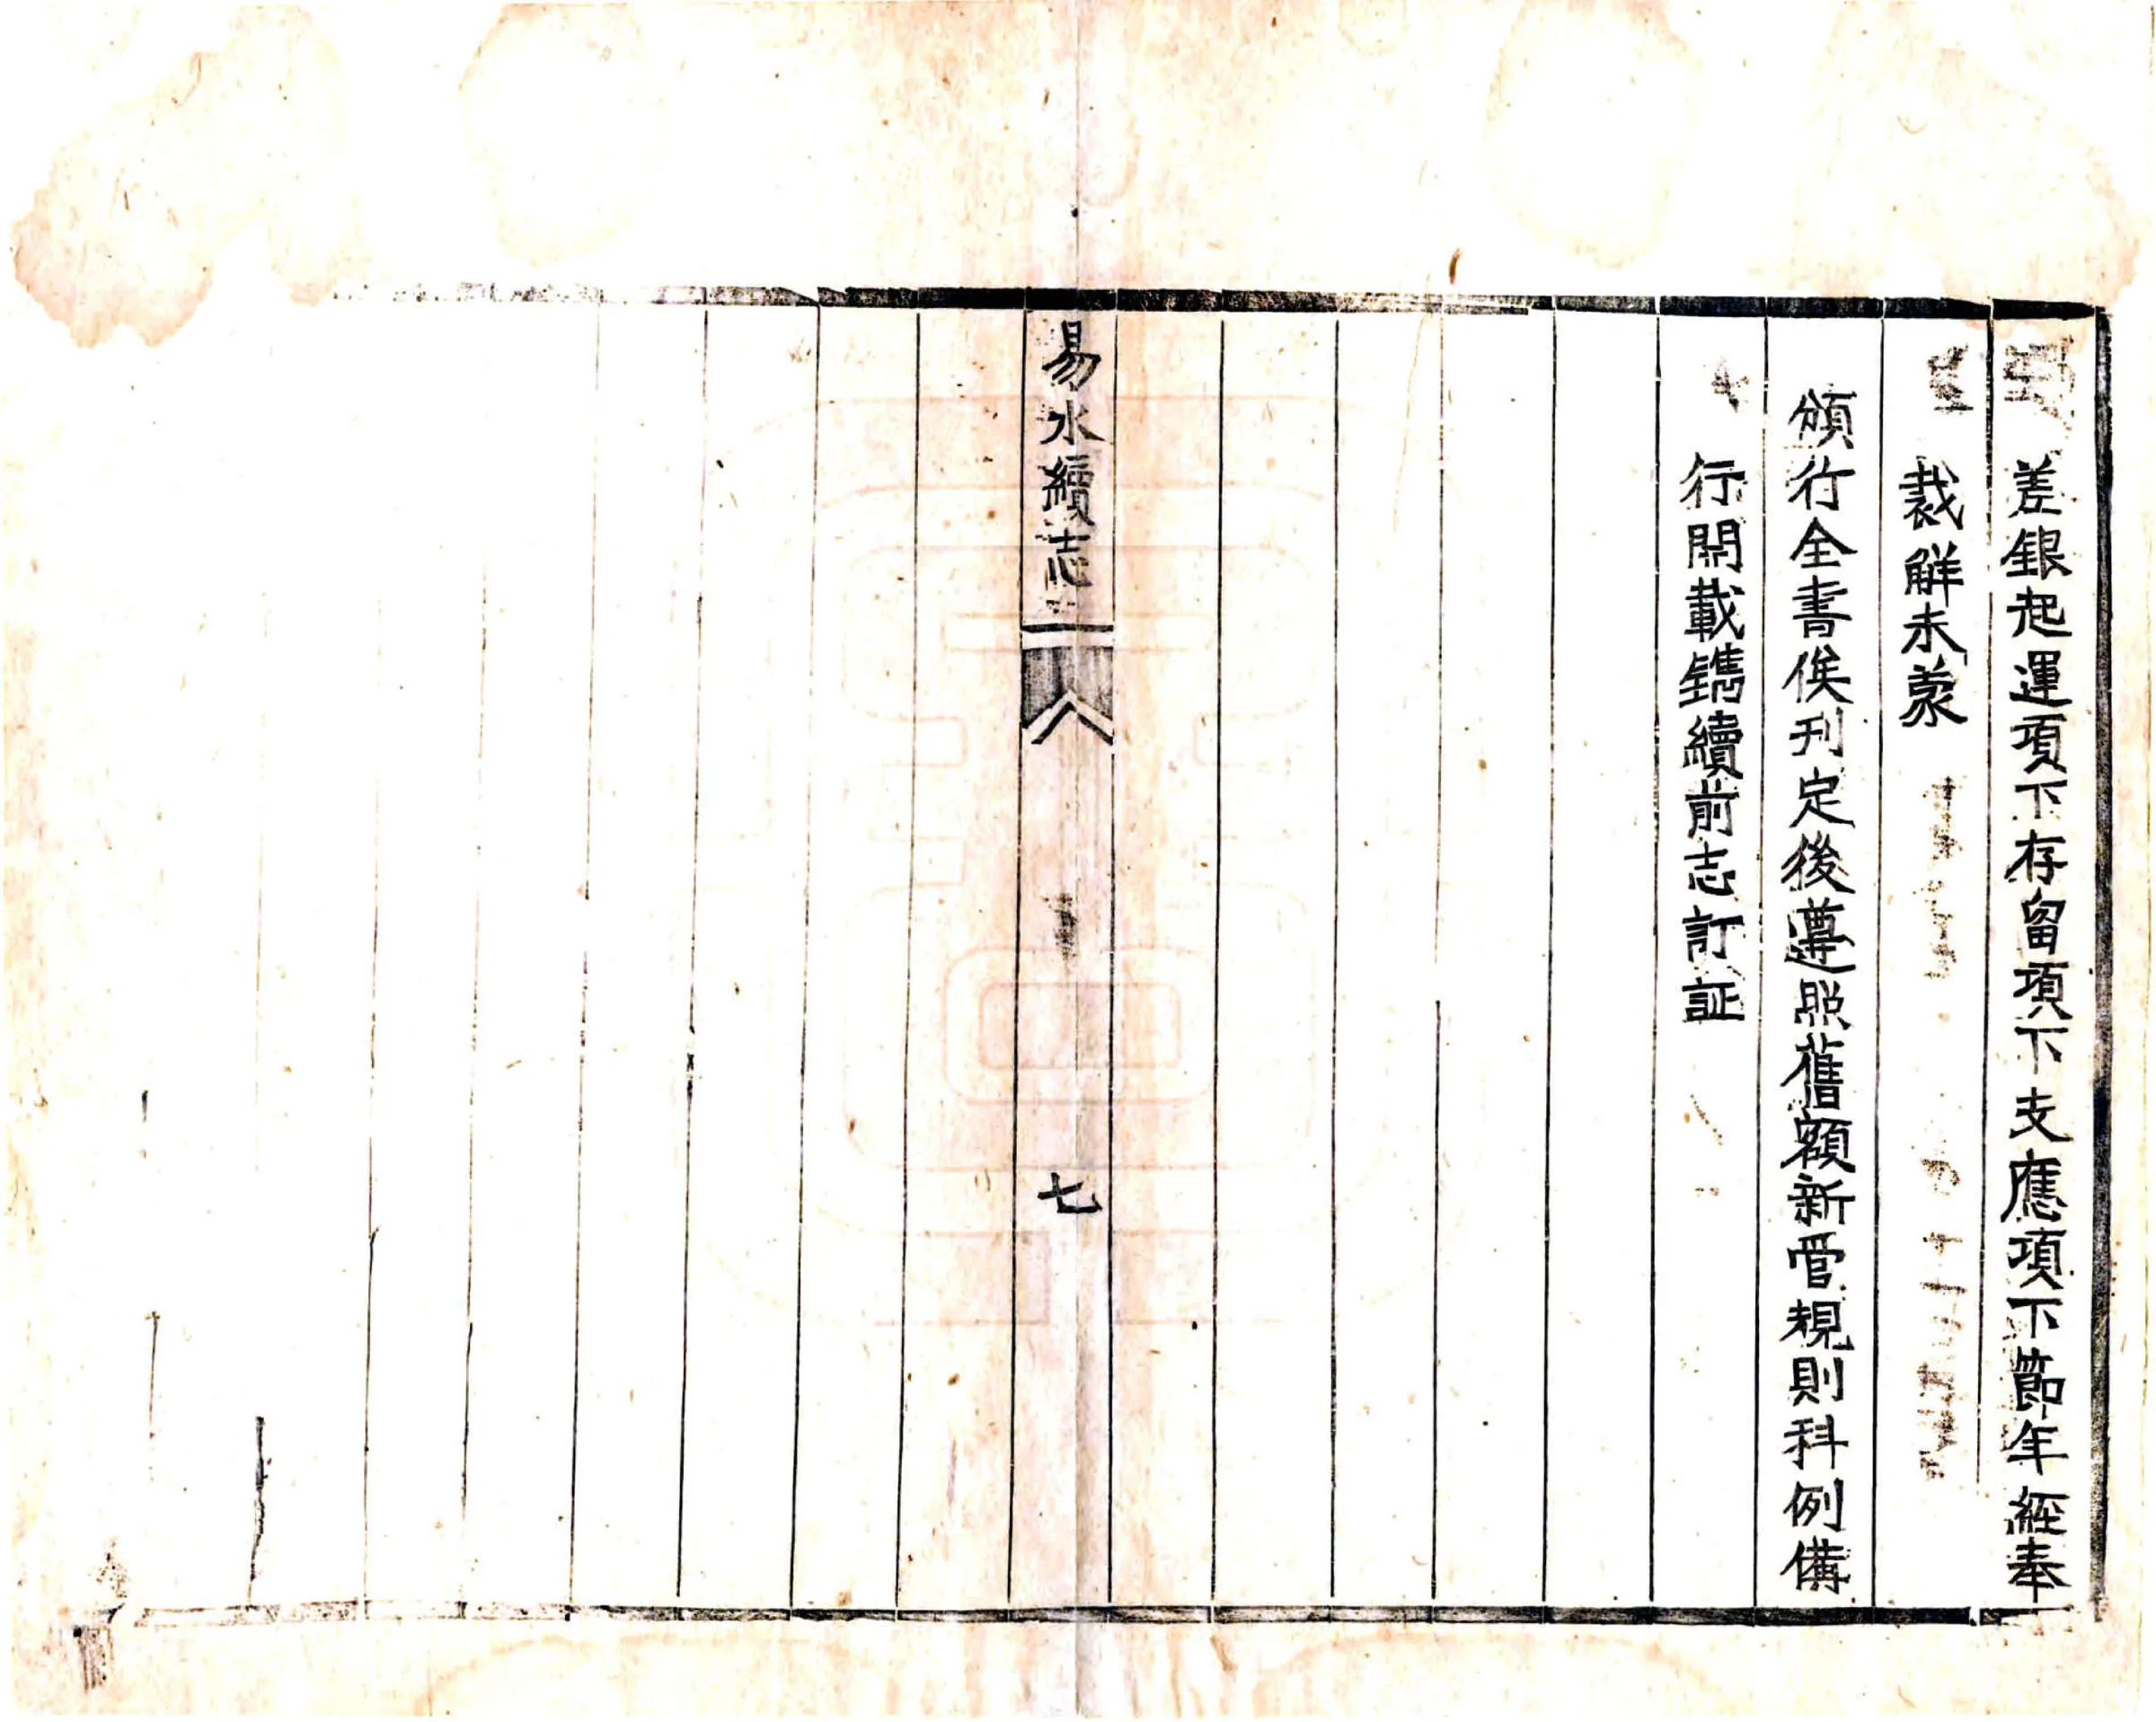 差銀起運項下存留項下支應項下節年經奉
裁解未蒙
頒行全書俟刋定後遵照舊額新管規則科例備
行開載鐫續前志訂証
易水續志
七